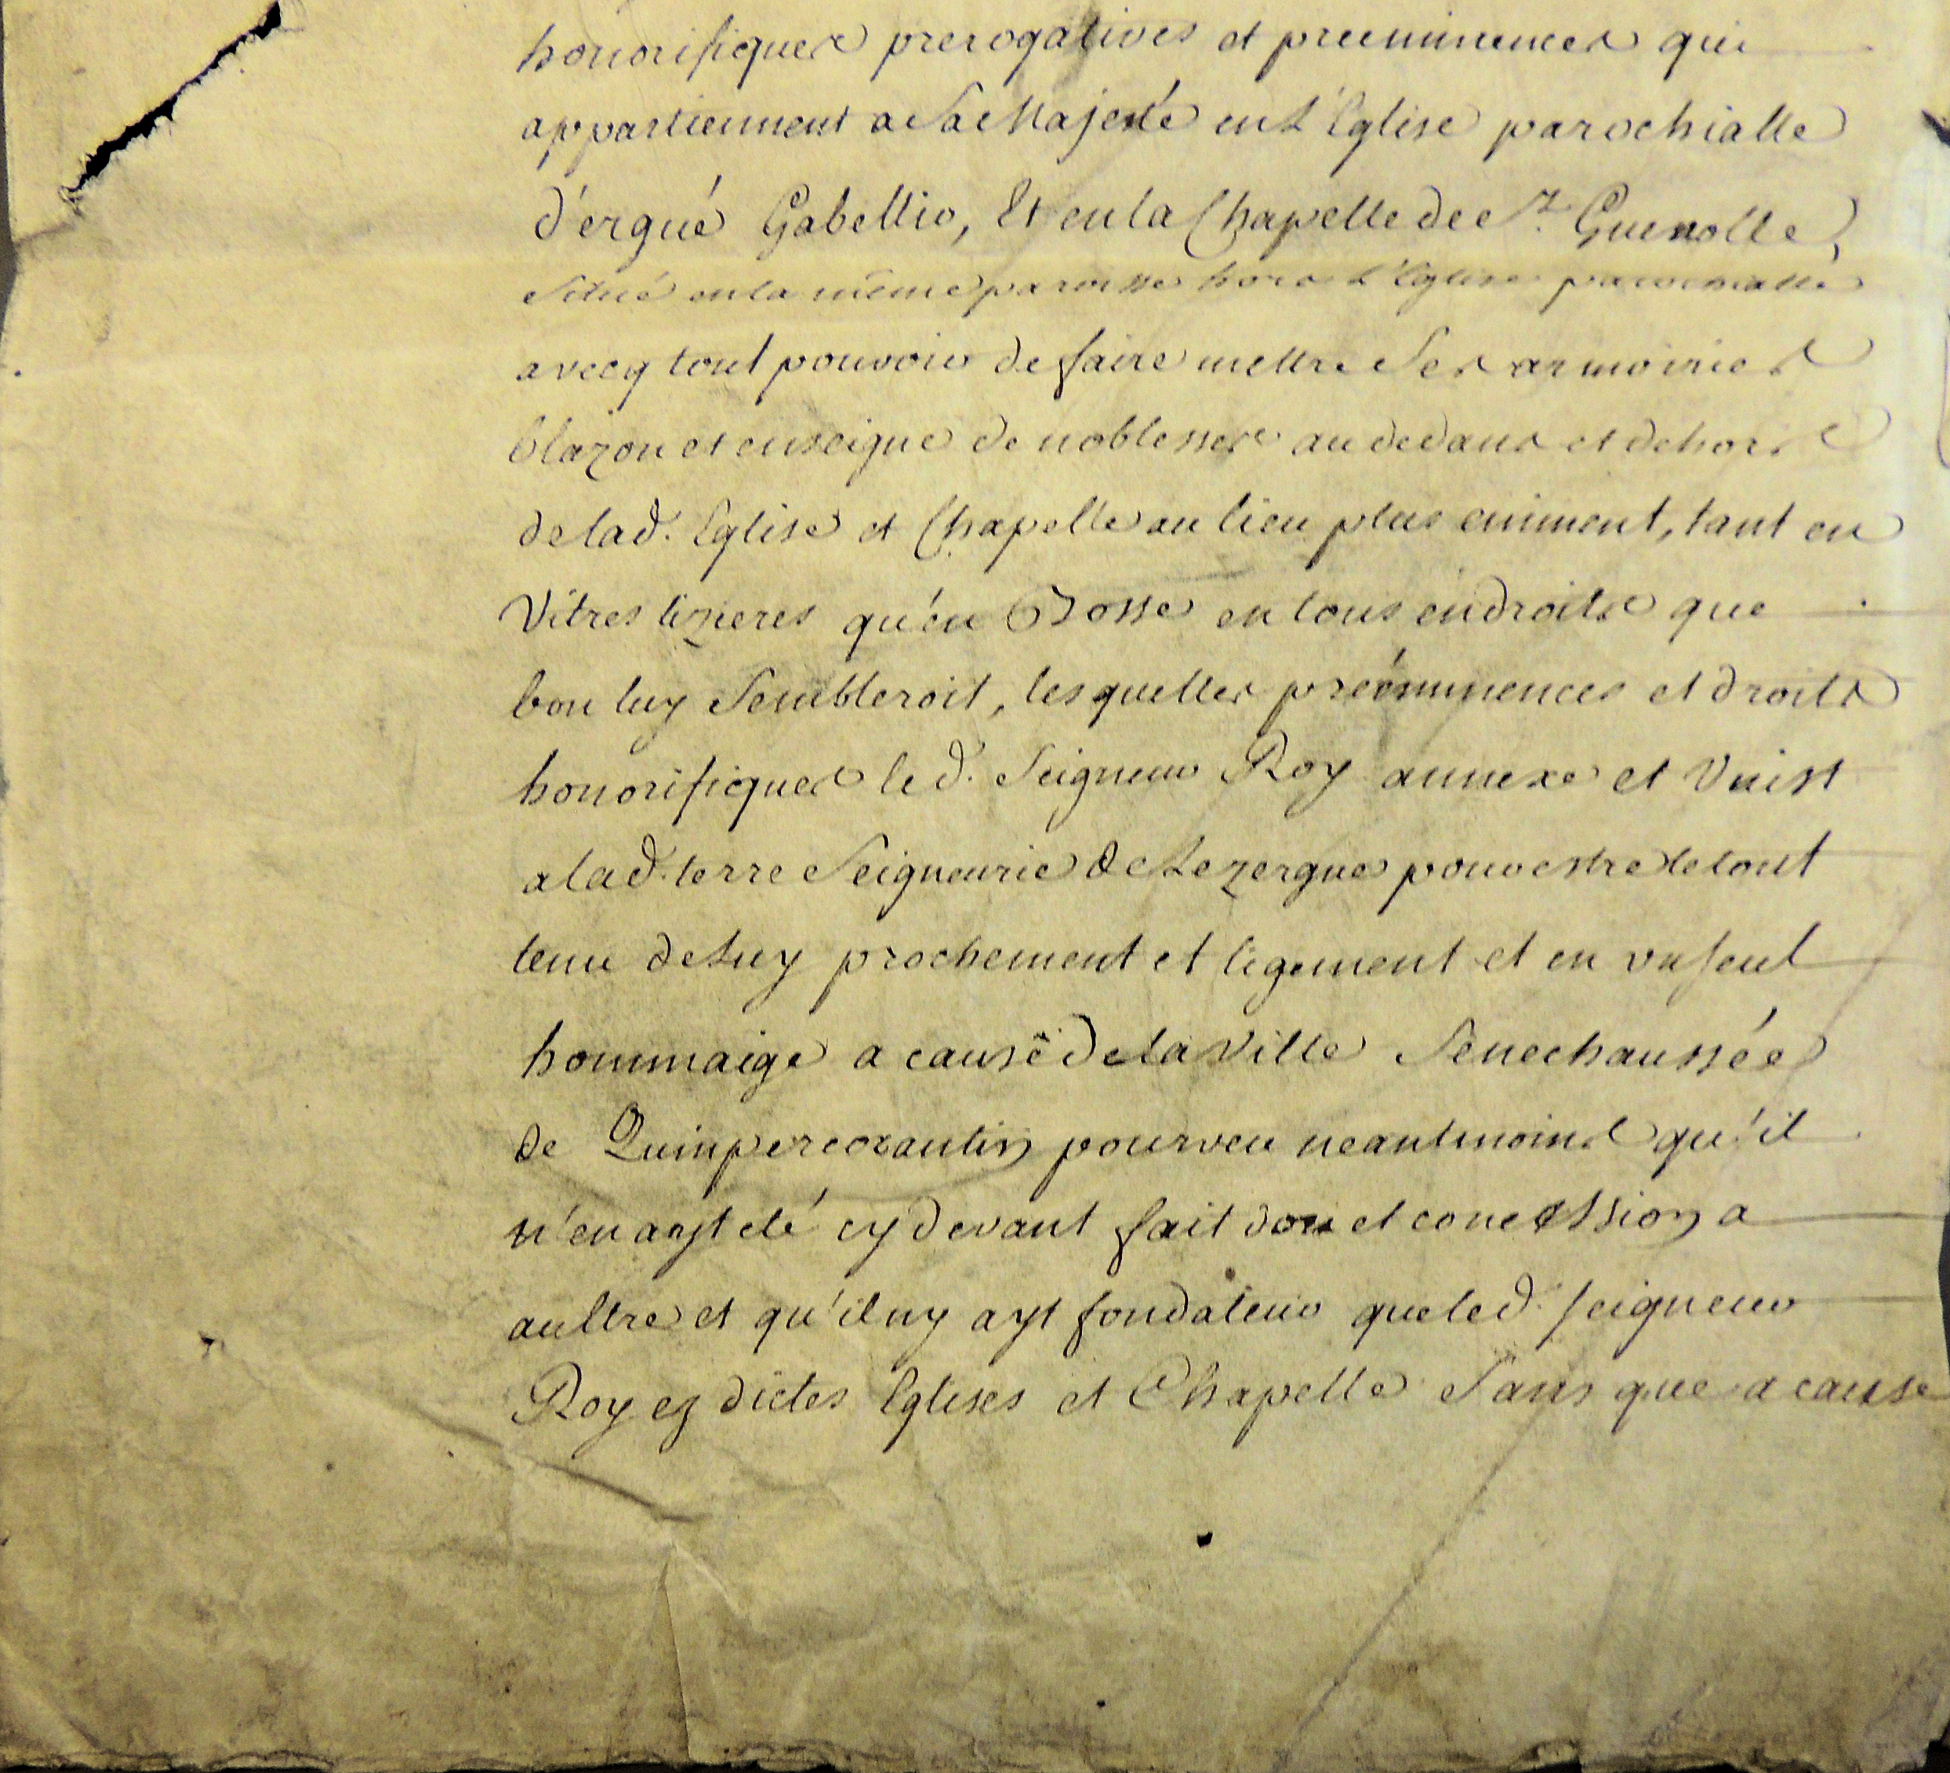 honorifiques prerogatives et preeminences qui
appartiennent a Sa Majesté en L'Eglise parochialle
d'ergué Gabellic, Et en la Chapelle de St. Guenolle,
Situé en la même paroisse hors L'Eglise parochialle
avecq tout pouvoir de faire mettre Ses armoiries
blazon et enseigne de noblesses au dedans et dehors
de lad. Eglise et Chapelle au lieu plus eminent, tant en
Vitres lizieres qu'en Bosse en tous endroits que
bon luy Sembleroit, lesquelles prééminences et droits
honorifiques led. Seigneur Roy annexe et Unist
a lad. terre Seigneurie de Lezergue pour estre le tout
tenu de Luy prochement et ligement et en un seul
hommaige a cause de la Ville Senechaussée
de Quinpercorantin pourveu neantmoins qu'il
n'en ayt eté cy devant fait don et concession a
aultre et qu'il ny ayt fondateur que led. seigneur
Roy ez dictes Eglises et Chapelle Sans que a cause